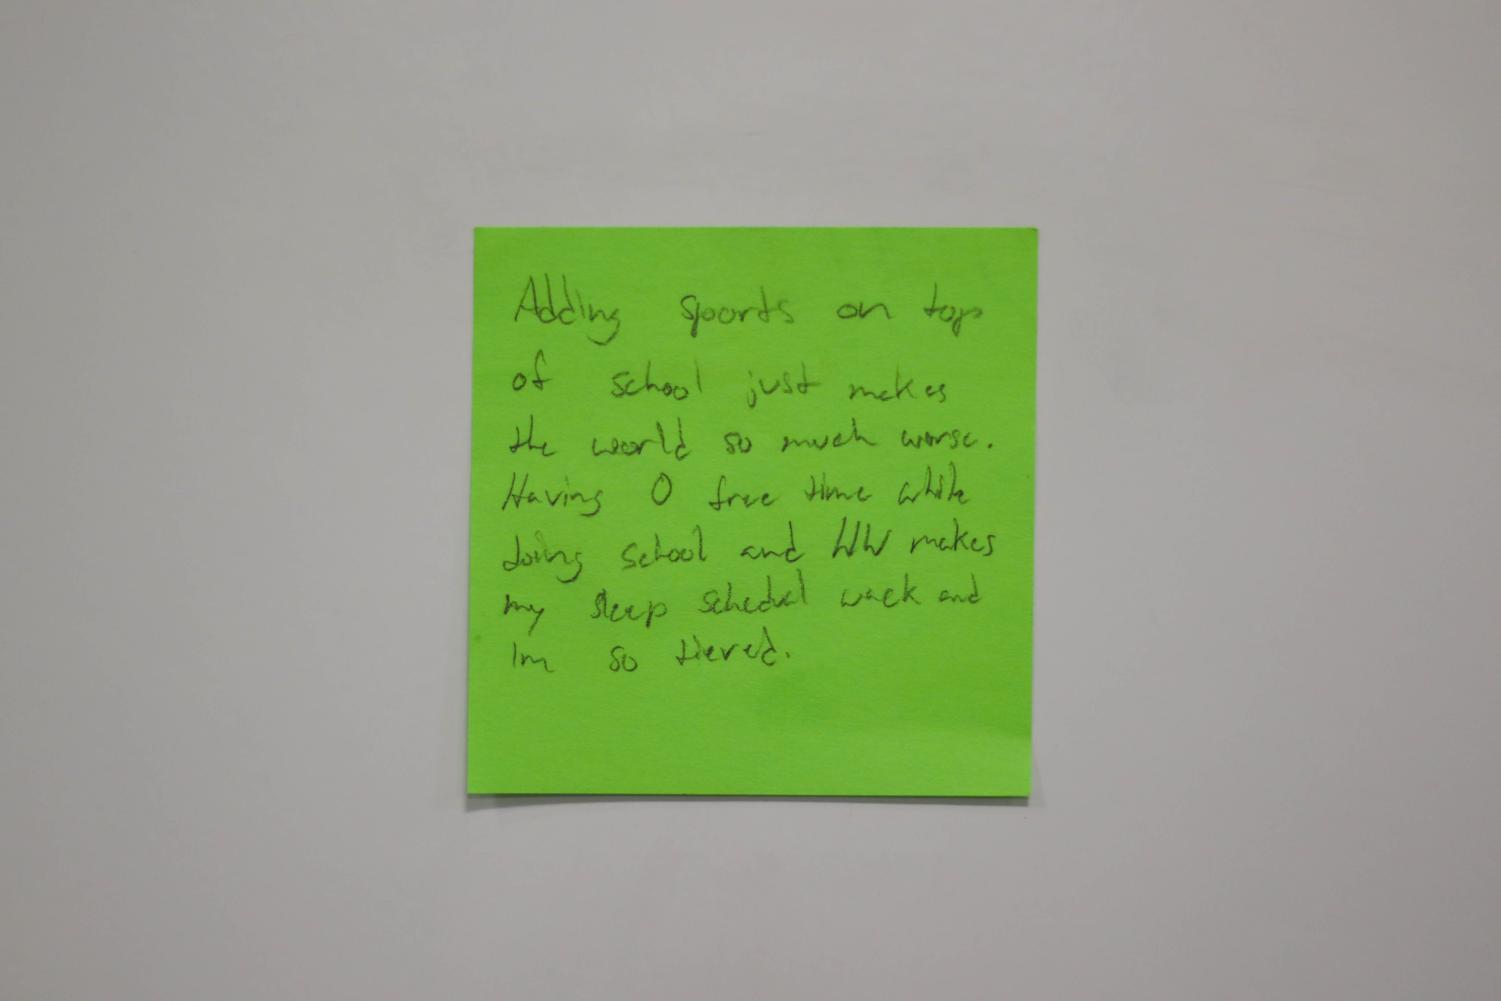 Adding sports on top
of school just makes
the world so much worse.
Having 0 free time while
doing school and HW makes
my sleep schedual wack and
Im so tiered.